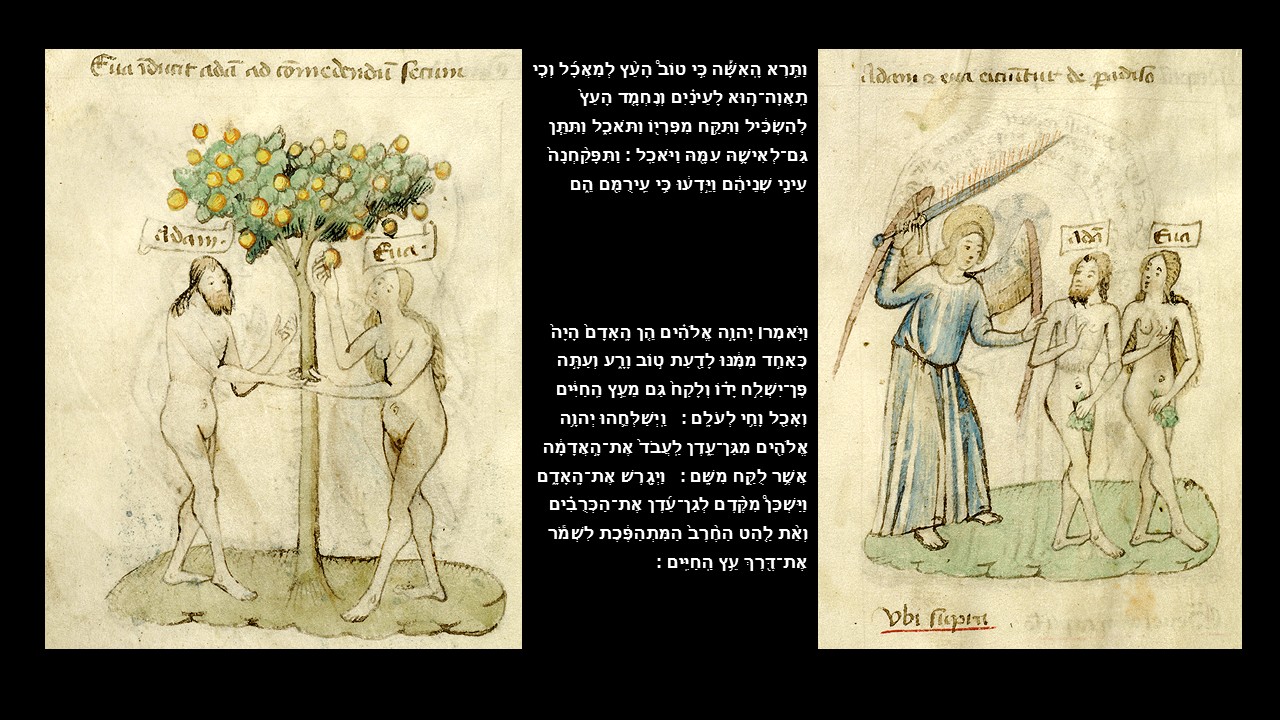 Eua īducit adā ad cōmedendū secum
Adam
Eua
וַתֵּ֣רֶא הָֽאִשָּׁ֡ה כִּ֣י טוֹב֩ הָעֵ֨ץ לְמַאֲכָ֜ל וְכִ֧י
תַֽאֲוָה־ה֣וּא לָעֵינַ֗יִם וְנֶחְמָ֤ד הָעֵץ֙
לְהַשְׂכִּ֔יל וַתִּקַּ֥ח מִפִּרְי֖וֹ וַתֹּאכַ֑ל וַתִּתֵּ֧ן
גַּם־לְאִישָׁ֛הּ עִמָּ֖הּ וַיֹּאכַֽל : וַתִּפָּקַ֨חְנָה֙
עֵינֵ֣י שְׁנֵיהֶ֔ם וַיֵּ֣דְע֔וּ כִּ֥י עֵֽירֻמִּ֖ם הֵ֑ם
וַיֹּ֣אמֶר׀ יְהוָ֣ה אֱלֹהִ֗ים הֵ֤ן הָֽאָדָם֙ הָיָה֙
כְּאַחַ֣ד מִמֶּ֔נּוּ לָדַ֖עַת ט֣וֹב וָרָ֑ע וְעַתָּ֣ה
פֶּן־יִשְׁלַ֣ח יָד֗וֹ וְלָקַח֙ גַּ֚ם מֵעֵ֣ץ הַֽחַיִּ֔ים
וְאָכַ֖ל וָחַ֥י לְעֹלָֽם : וַֽיְשַׁלְּחֵ֛הוּ יְהוָ֥ה
אֱלֹהִ֖ים מִגַּן־עֵ֑דֶן לַֽעֲבֹד֙ אֶת־הָ֣אֲדָמָ֔ה
אֲשֶׁ֥ר לֻקַּ֖ח מִשָּֽׁם : וַיְגָ֖רֶשׁ אֶת־הָֽאָדָ֑ם
וַיַּשְׁכֵּן֩ מִקֶּ֨דֶם לְגַן־עֵ֜דֶן אֶת־הַכְּרֻבִ֗ים
וְאֵ֨ת לַ֤הַט הַחֶ֨רֶב֙ הַמִּתְהַפֶּ֔כֶת לִשְׁמֹ֕ר
אֶת־דֶּ֖רֶךְ עֵ֥ץ הַֽחַיִּֽים :
Adam et eua eiciūtur de padiso
Adā
Eua
Vbi supra